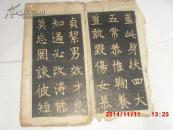 蓋此身髮四大
五常恭惟鞠養
豈敢毀傷女慕
貞絜男效才良
知過必改得能
莫忘罔談彼短
2014/11/11